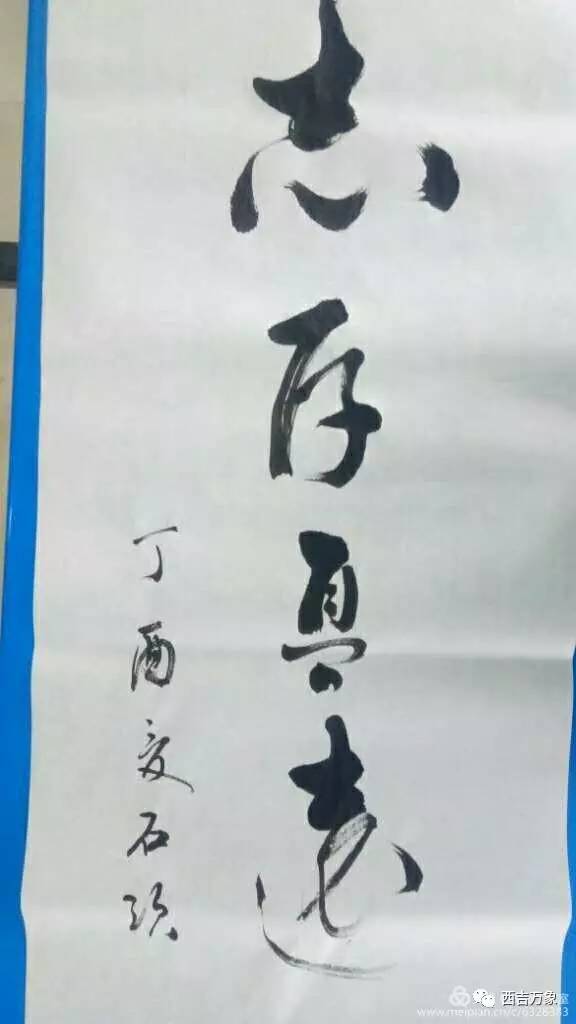 志存高遠
丁酉夏石頭
西吉万象
www.meipian.cn/c/6328383